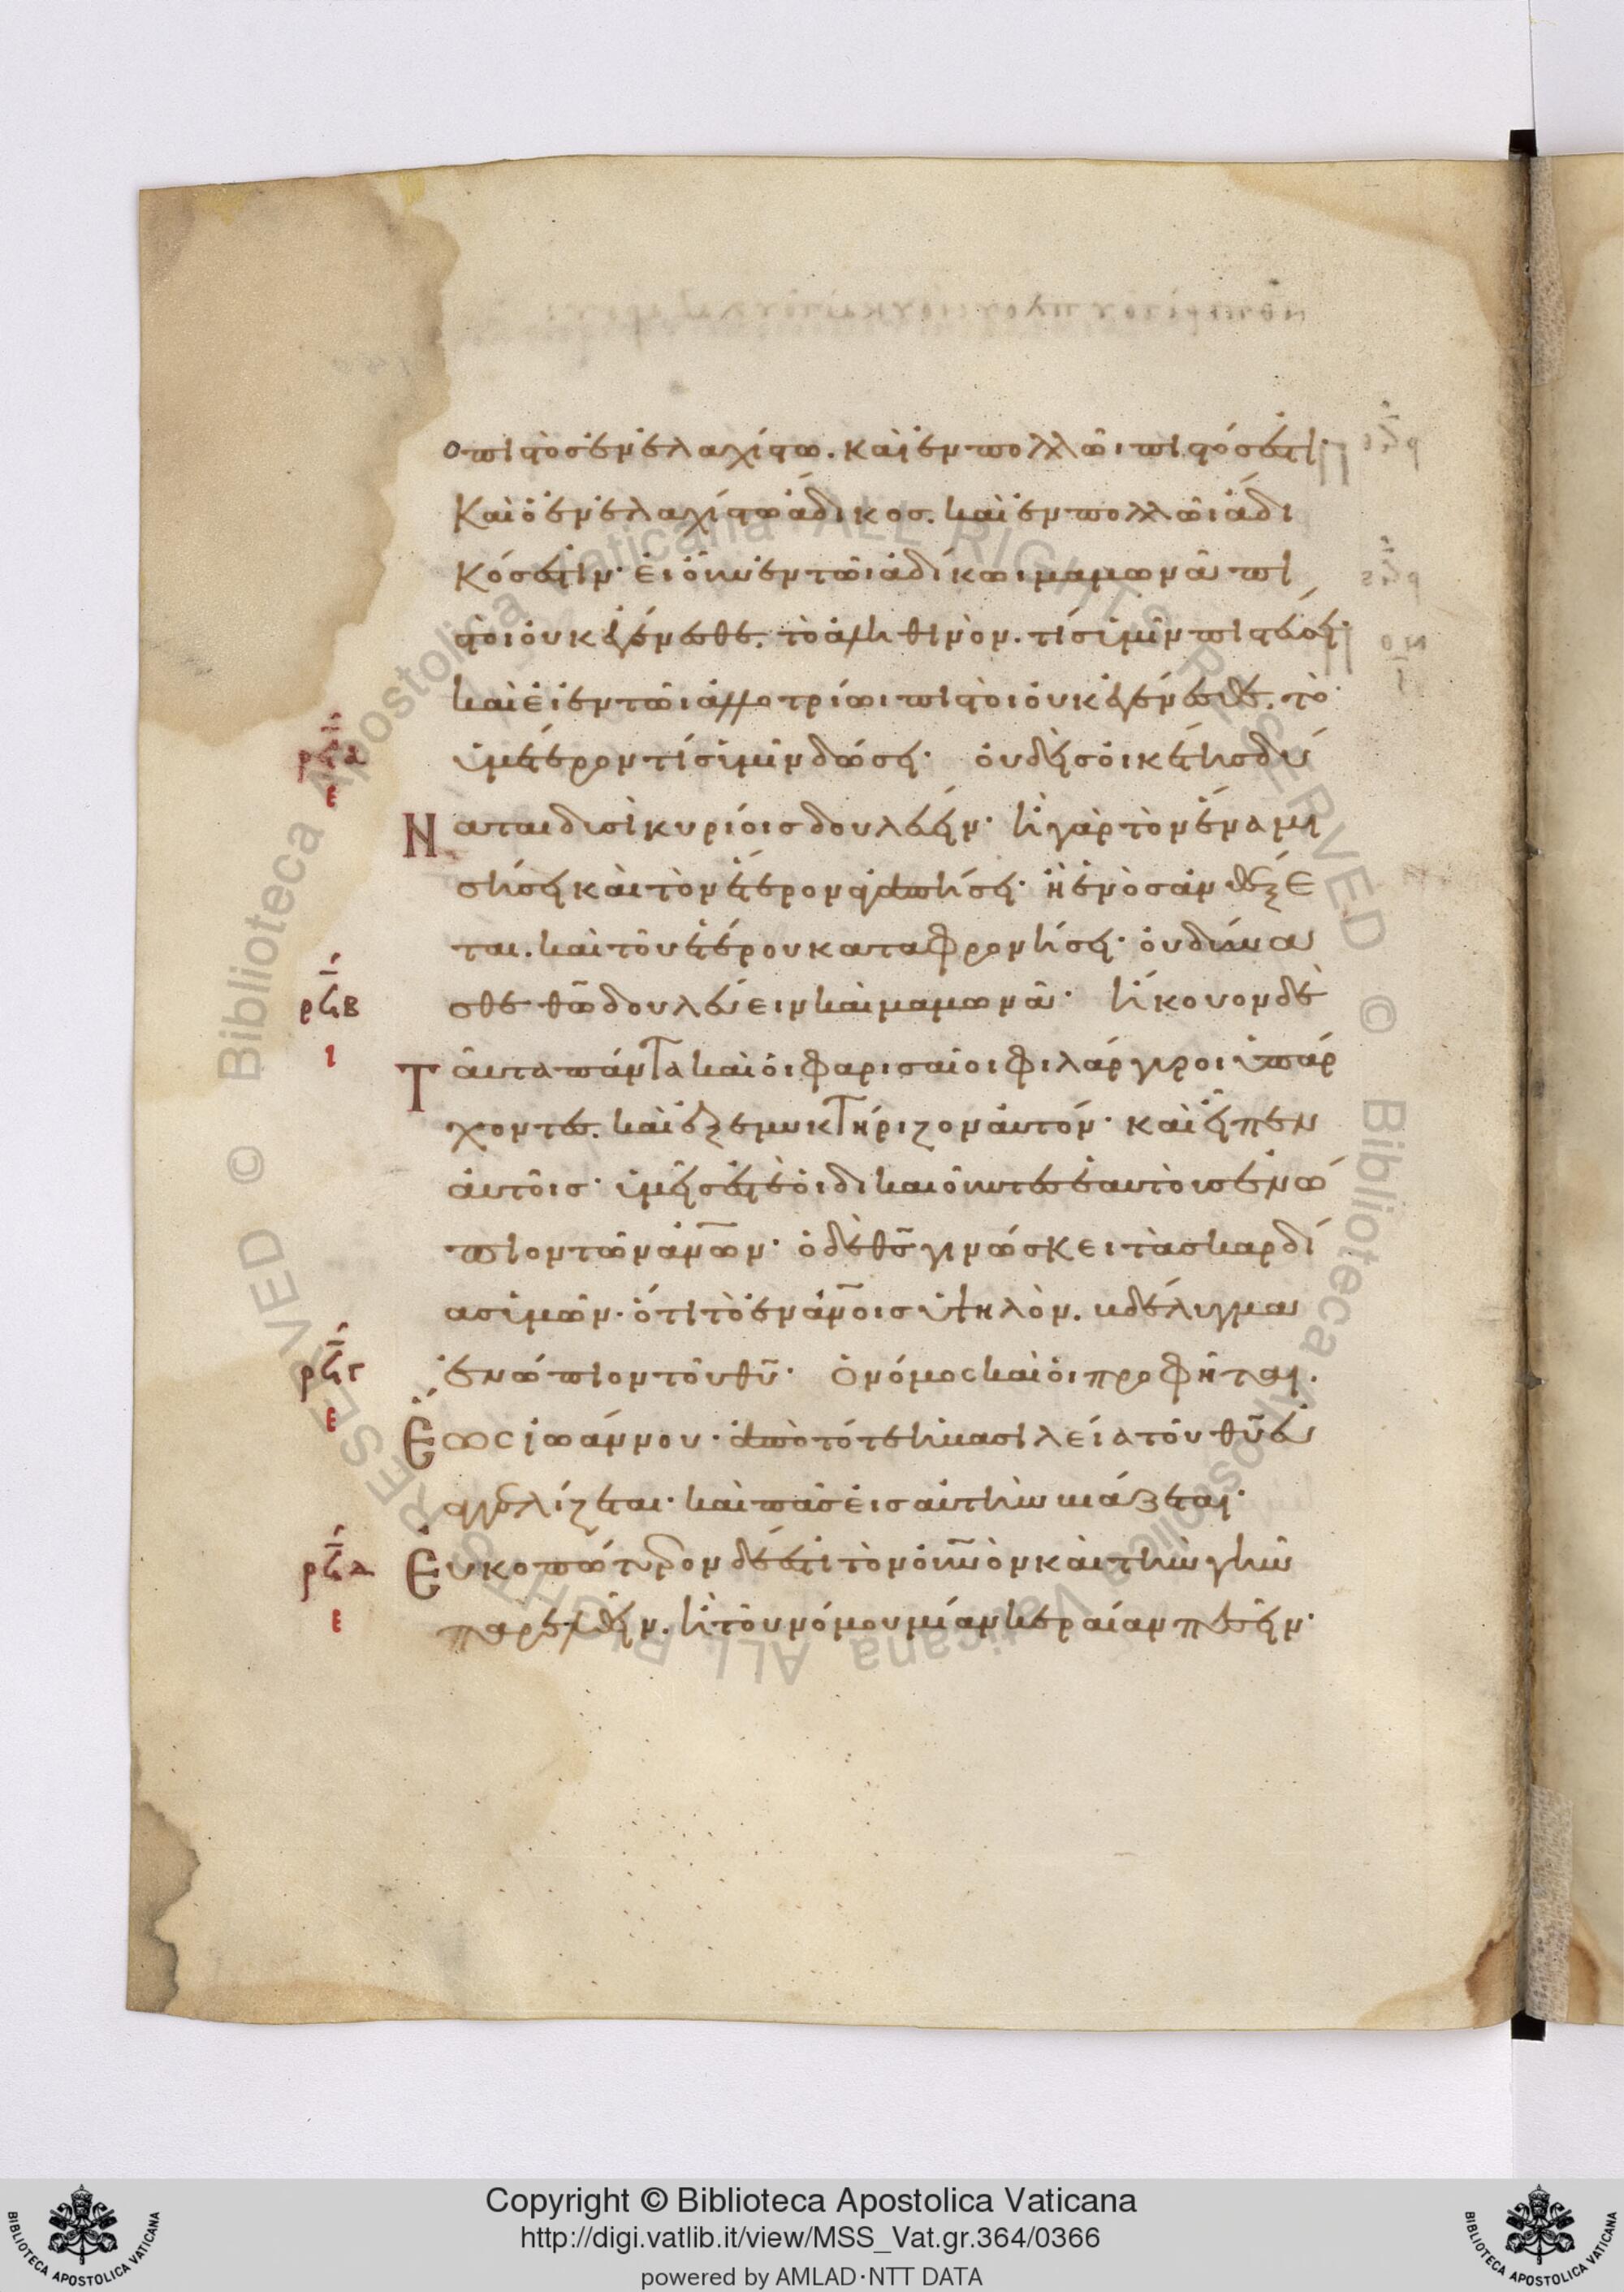 ὁ πιστὸς ἐν ἐλαχίστω. καὶ ἐν πολλῶι πιστός ἐστι·
Καὶ ὁ ἐν ἐλαχίστω ἄδικος. καὶ ἐν πολλῶι ἄδι
κός ἐστιν· εἰ οὖν ἐν τῶι ἀδίκωι μαμωνᾶ πι
στοὶ οὐκ ἐγένεσθε. τὸ ἀληθινὸν. τίς ὑμῖν πιστεύσει·
καὶ εἰ ἐν τῶι ἀλλοτρίωι πιστοὶ οὐκ ἐγένεσθε. τὸ
ρϟα
ὑμέτερον τίς ὑμῖν δώσει· οὐδεὶς οἰκέτης δύ
ε
Ναται δυσὶ κυρίοις δουλεύειν· ἢ γὰρ τὸν ἕνα μι
σήσει καὶ τὸν ἕτερον ἀγαπήσει· ἢ ἑνὸς ἀνθέξε
ται. καὶ τοῦ ἑτέρου καταφρονήσει· οὐ δύνα
ρϟβ
σθε θῶ δουλεύειν καὶ μαμωνᾶ· ἤκουον δὲ
ι
Ταῦτα πάντα καὶ οἱ φαρισαῖοι φιλάργυροι ὑπάρ
χοντες. καὶ ἐξεμυκτήριζον αὐτόν· καὶ εἶπεν
αὐτοῖς· ὑμεῖς ἐστὲ οἱ δικαιοῦντες ἑαυτοὺς ἐνώ
πιον τῶν ἀνων· ὁ δὲ θς γινώσκει τὰς καρδί
ας ὑμῶν· ὅτι τὸ ἐν ἀνοις ὑψηλὸν. βδέλυγμα
ρϟγ
ἐνώπιον τοῦ θυ· Ὁ νόμος καὶ οἱ προφῆται.
ε
Ἕως ἰωάννου· ἀπὸ τότε ἡ βασιλεία τοῦ θυ εὐ
αγγελίζεται· καὶ πᾶς εἰς αὐτὴν βιάζεται·
ρϟδ
Εὐκοπώτερον δέ ἐστι τὸν οὐνὸν καὶ τὴν γῆν
ε
παρελθεῖν. ἢ τοῦ νόμου μίαν κεραίαν πεσεῖν·
Copyright © Biblioteca Apostolica Vaticana
http://digi.vatlib.it/view/MSS_Vat.gr.364/0366
powered by AMLAD·NTT DATA